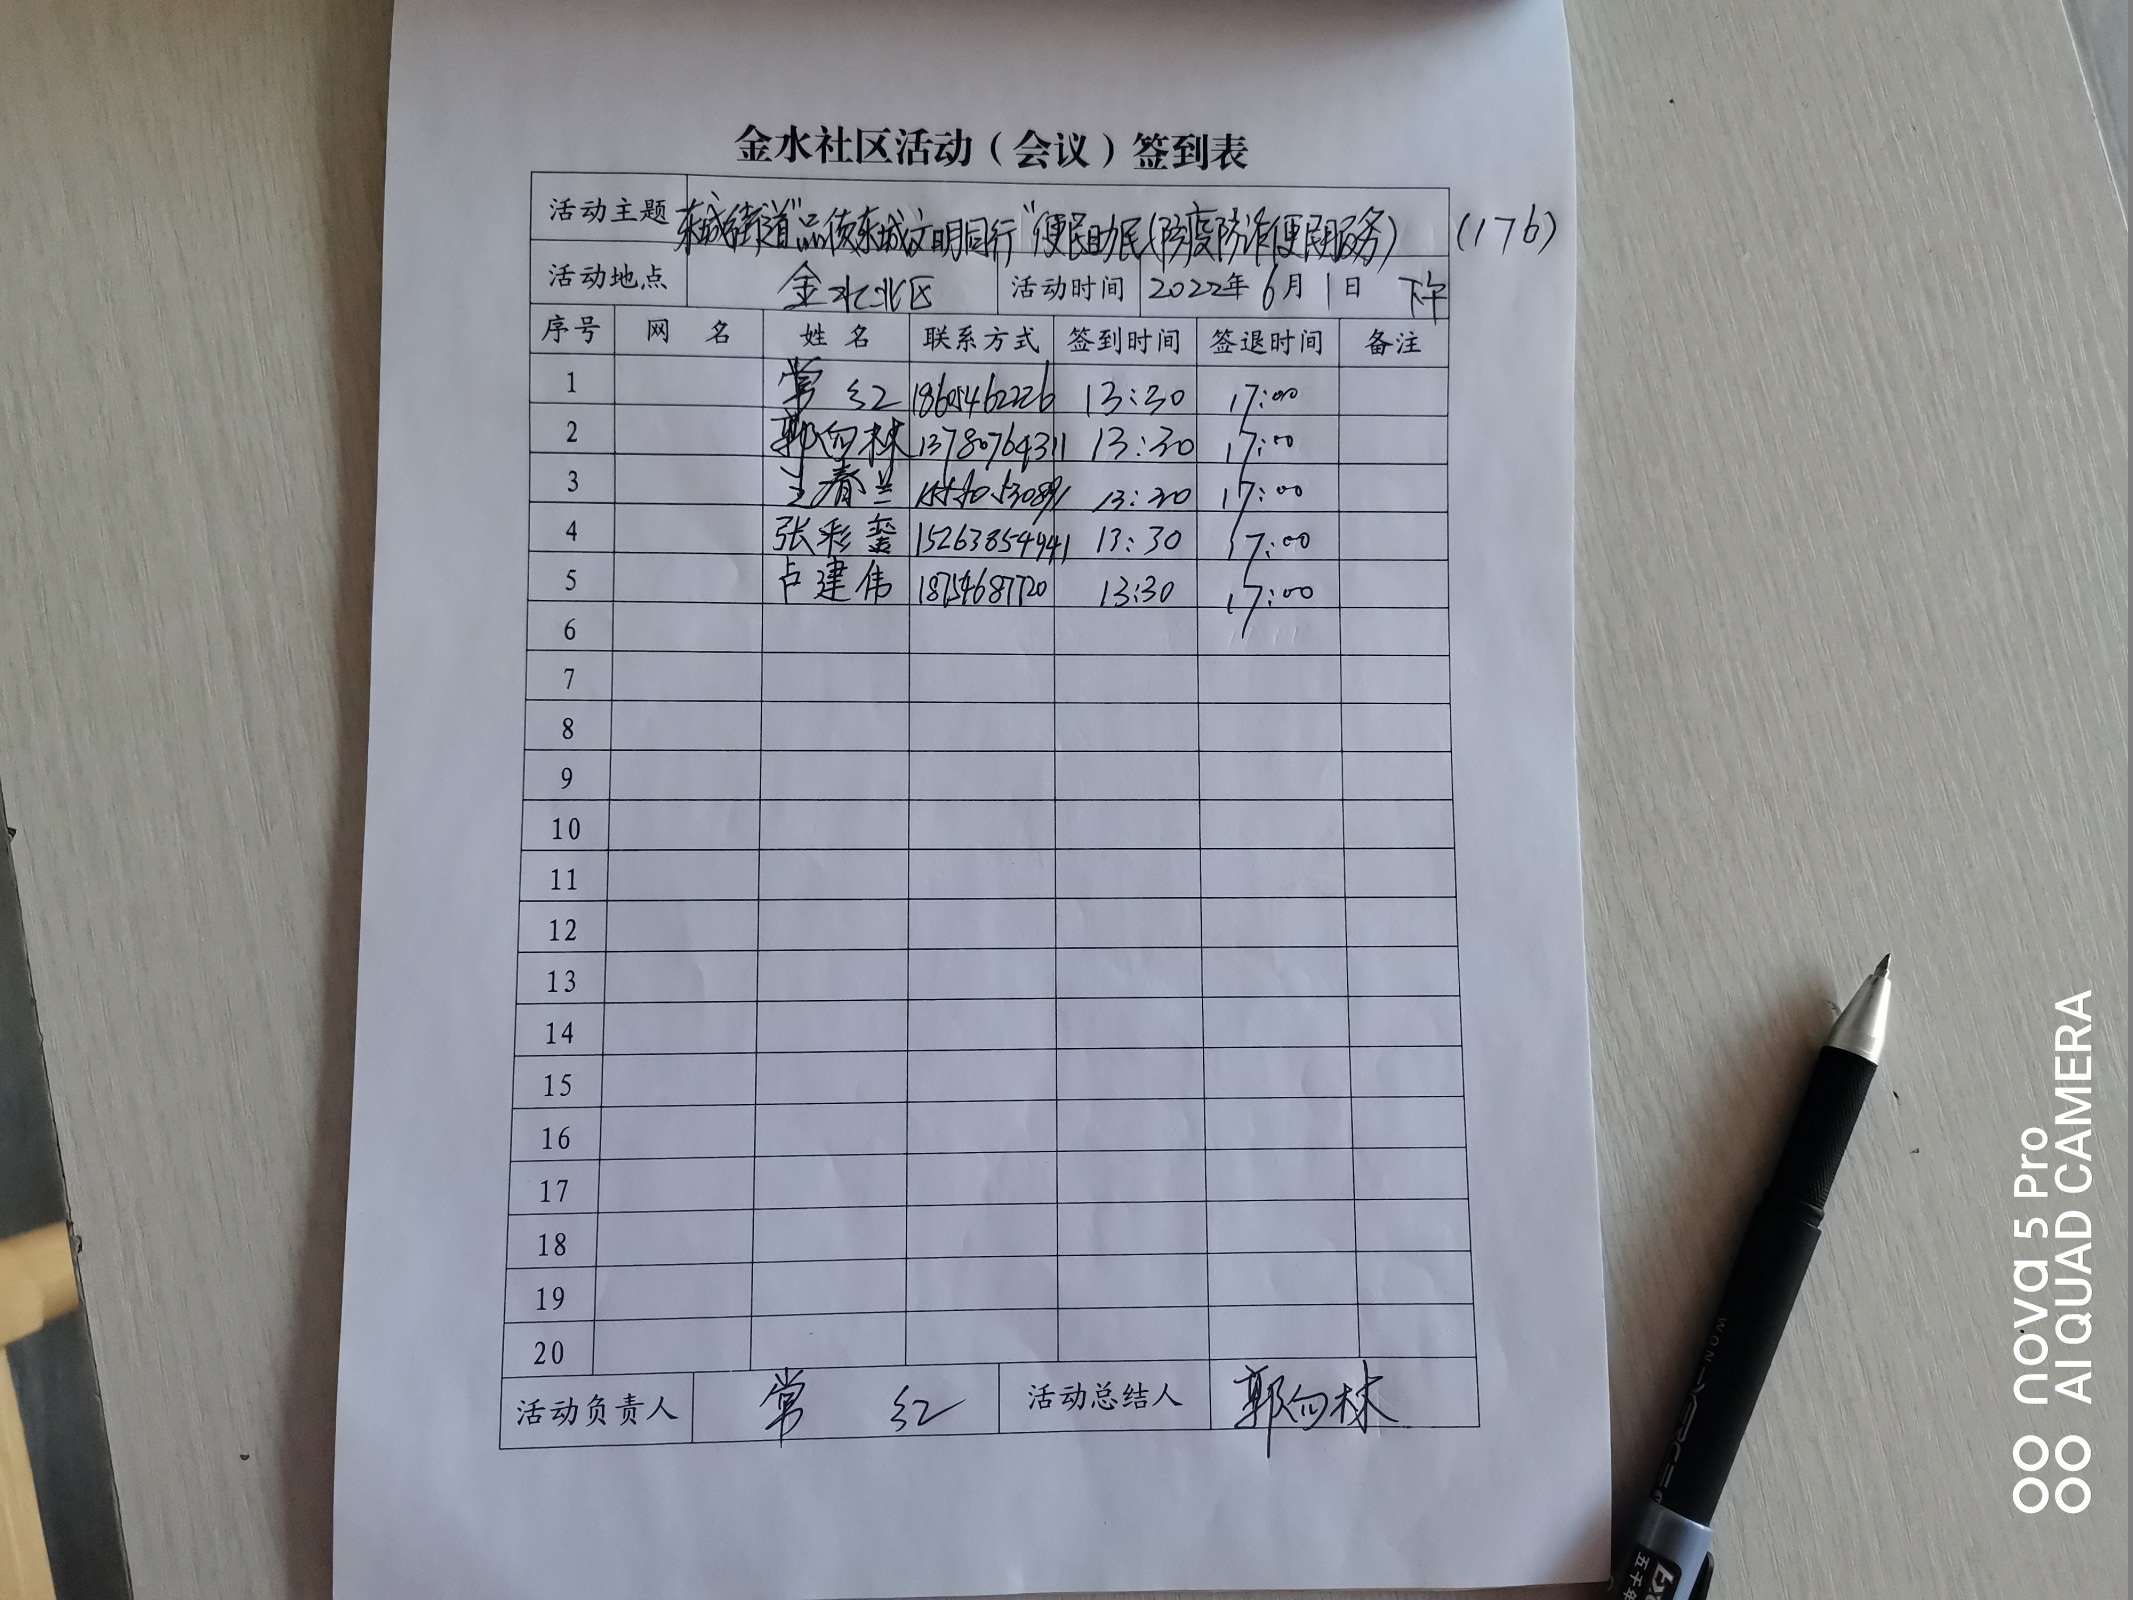 金水社区活动（会议）签到表
活动主题 东城街道"品质东城文明同行"便民助民(防疫防诈便民服务) (176)
活动地点 金水北区 活动时间 2022年 6月 1日 下午
序号 网 名 姓 名 联系方式 签到时间 签退时间 备注
1 常 红 18605462226 13:30 17:00
2 郭向林 13780764311 13:30 17:00
3 王春兰 13:30 17:00
4 张彩 15263854941 13:30 17:00
5 卢建伟 18754687720 13:30 17:00
6
7
8
9
10
11
12
13
14
15
16
17
18
19
20
活动负责人 常 红 活动总结人 郭向林
nova 5 Pro
AI QUAD CAMERA